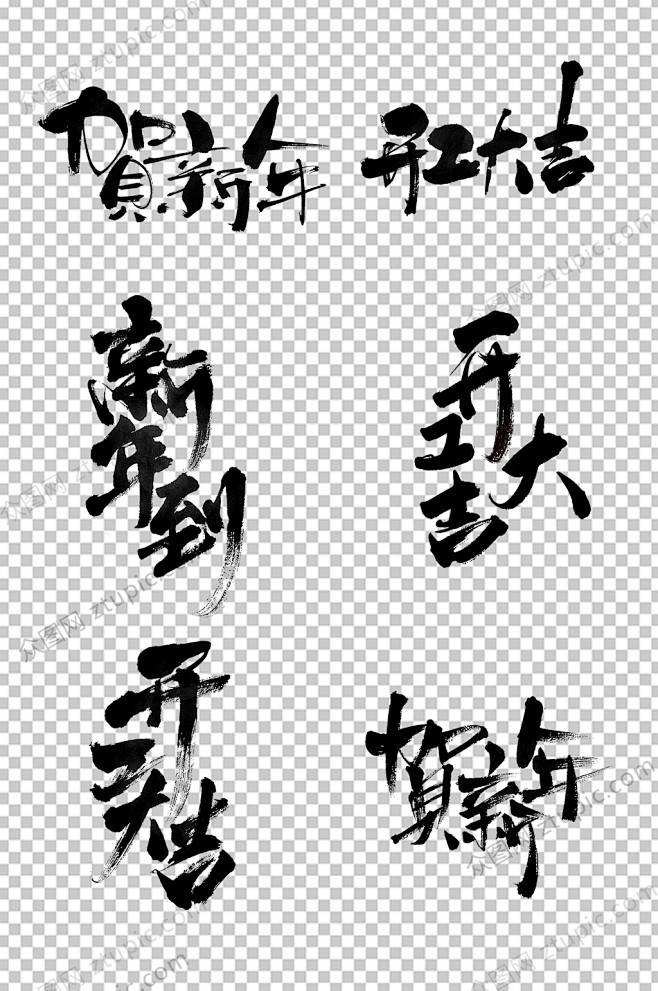 賀新年
开工大吉
新年到
开工大吉
开工大吉
賀新年
众图网 ztupic.com
众图网 ztupic.com
众图网 ztupic.com
众图网 ztupic.com
众图网 ztupic.com
众图网 ztupic.com